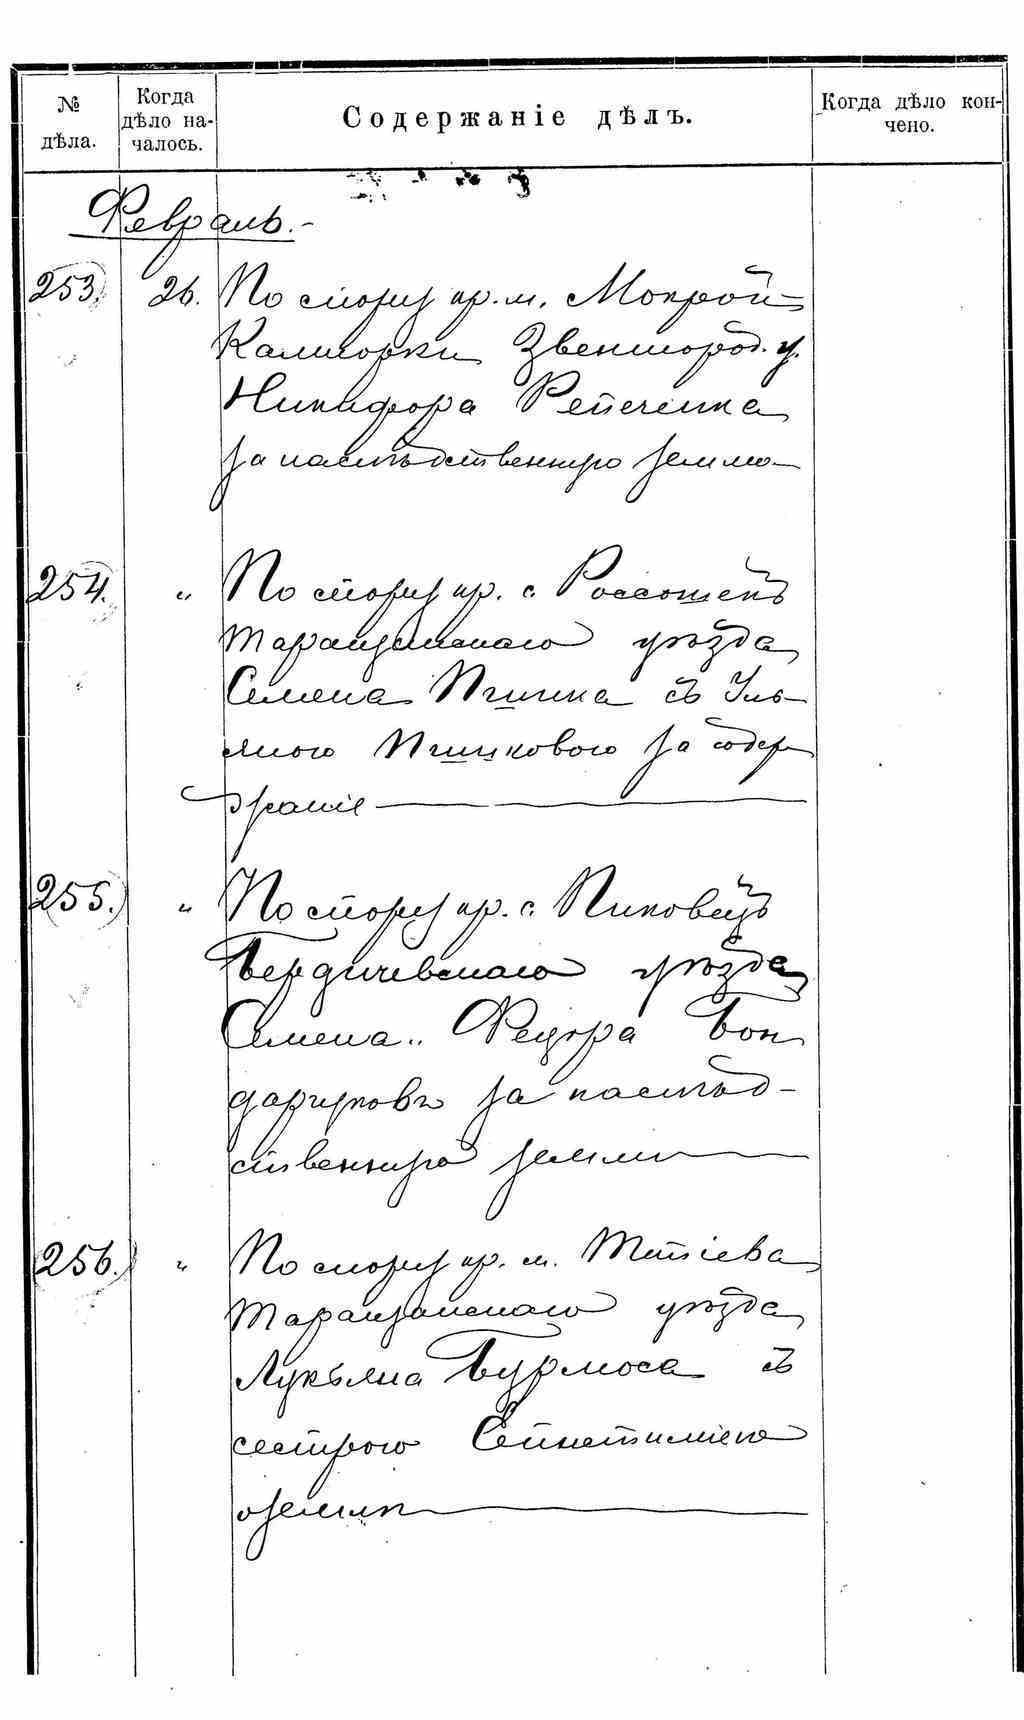 № дѣла.
Когда дѣло на-чалось.
Содержаніе дѣлъ.
Когда дѣло кон-чено.
Февраль.-
253. 26. По спору кр. м. Мокрой
Калигорки Звенигород. у.
Никифора
за наслѣдственную землю
254. " По спору кр. с. Россошекъ
Таращанскаго уѣзда
Семена съ Уль-
яною за содер
жаніе
255. " По спору кр. с. Пиковецъ
Бердичевскаго уѣзда
Семена и Федора Бон
дарчуковъ за наслѣд-
ственную землю
256. " По спору кр. м. Тетіева
Таращанскаго уѣзда
Лукьяна Бурмоса съ
сестрою
о земли